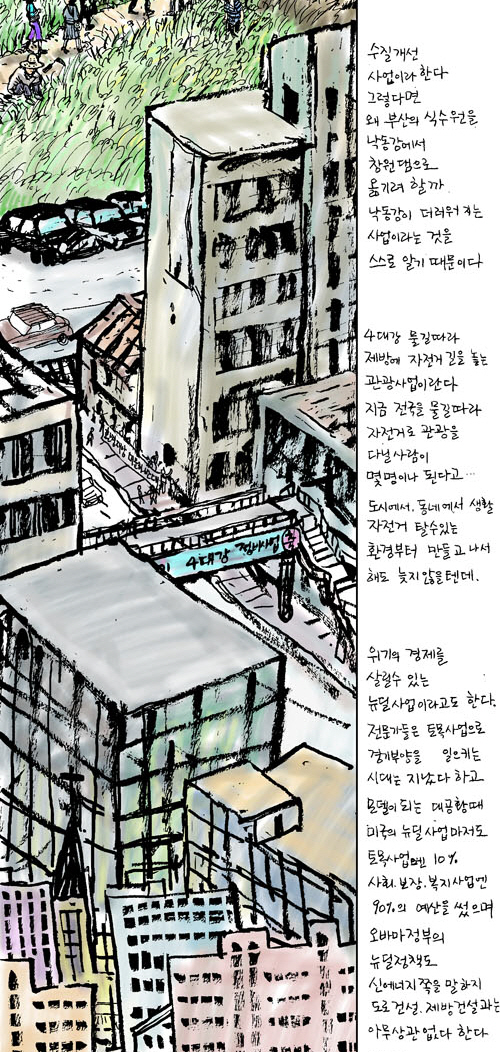 4대강 정비사업
수질개선
사업이라 한다
그렇다면
왜 부산의 식수원을
낙동강에서
창원댐으로
옮기려 할까.
낙동강이 더러워지는
사업이라는 것을
스스로 알기 때문이다
4대강 물길따라
제방에 자전거 길을 놓는
관광사업이란다
지금 전국을 물길따라
자전거로 관광을
다닐 사람이
몇명이나 된다고...
도시에서, 동네에서 생활
자전거 탈수있는
환경부터 만들고 나서
해도 늦지 않을텐데.
위기의 경제를
살릴수 있는
뉴딜사업이라고도 한다.
전문가들은 토목사업으로
경기부양을 일으키는
시대는 지났다 하고
모델이 되는 대공황때
미국의 뉴딜사업마저도
토목사업엔 10%
사회.보장.복지사업엔
90%의 예산을 썼으며
오바마정부의
뉴딜정책도
신에너지쪽을 말하지
도로건설. 제방건설과는
아무상관 없다 한다.